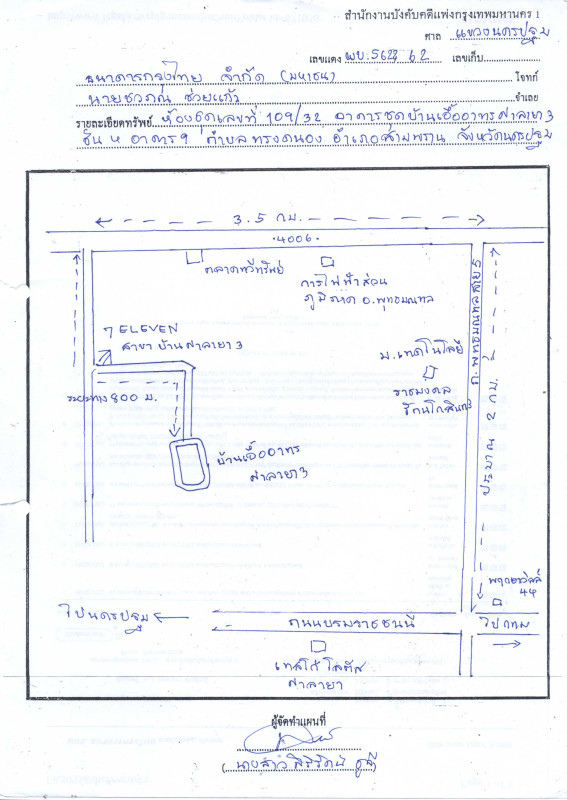 สำนักงานบังคับคดีแพ่งกรุงเทพมหานคร 1
ศาล แขวงนครปฐม
เลขแดง ผบ. 5623/62 เลขเก็บ
ธนาคารกรุงไทย จำกัด (มหาชน) โจทก์
นายชวภณ ช่วยแก้ว จำเลย
รายละเอียดทรัพย์ ห้องชุดเลขที่ 109/32 อาคารชุดบ้านเอื้ออาทรศาลายา 3
ชั้น 4 อาคาร 9 ตำบลทรงคนอง อำเภอสามพราน จังหวัดนครปฐม
3.5 กม.
4006
ตลาดทวีทรัพย์
การไฟฟ้าส่วน
ภูมิภาค อ.พุทธมณฑล
ถ.พุทธมณฑลสาย 5
7 ELEVEN
สาขา บ้านศาลายา 3
ม.เทคโนโลยี
ราชมงคล
รัตนโกสินทร์
ระยะทาง 800 ม.
ประมาณ 2 กม.
บ้านเอื้ออาทร
ศาลายา 3
44
ไปนครปฐม
ถนนบรมราชชนนี
ไป กทม
เทสโก้ โลตัส
ศาลายา
ผู้จัดทำแผนที่